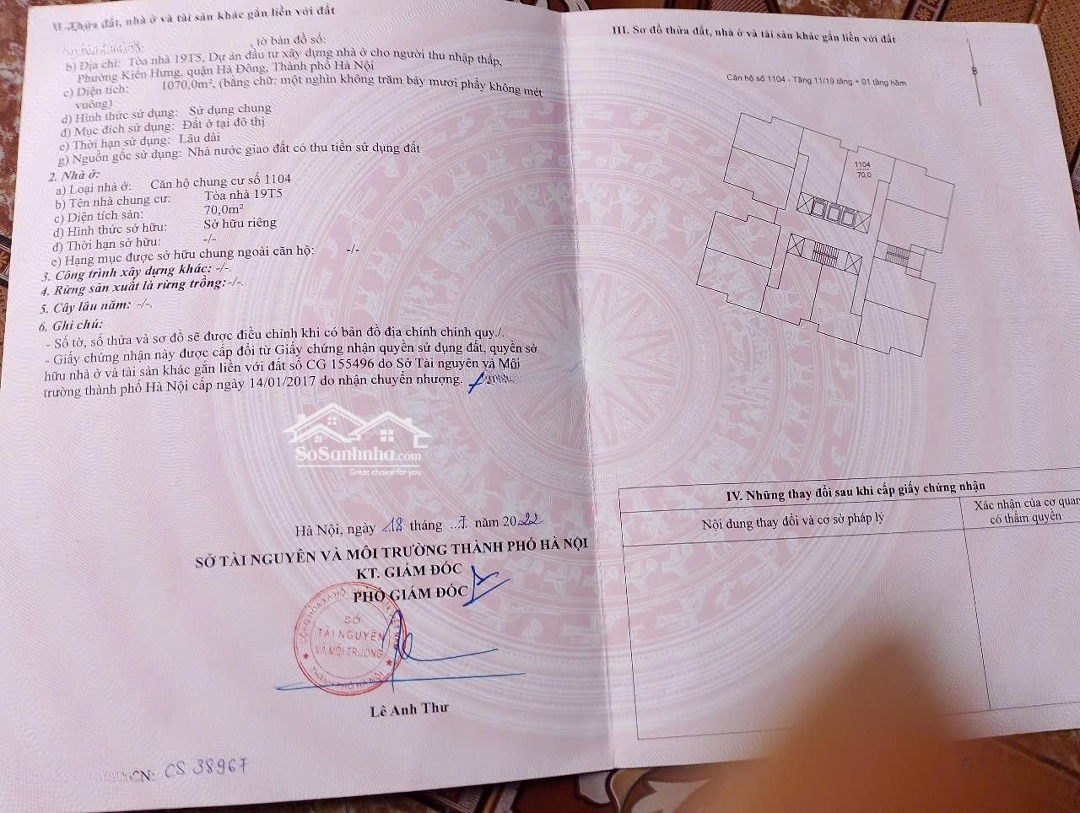 II. Thửa đất, nhà ở và tài sản khác gắn liền với đất
tờ bản đồ số:
b) Địa chỉ: Tòa nhà 19T5, Dự án đầu tư xây dựng nhà ở cho người thu nhập thấp,
Phường Kiến Hưng, quận Hà Đông, Thành phố Hà Nội
c) Diện tích: 1070,0m², (bằng chữ: một nghìn không trăm bảy mươi phẩy không mét
vuông)
d) Hình thức sử dụng: Sử dụng chung
đ) Mục đích sử dụng: Đất ở tại đô thị
e) Thời hạn sử dụng: Lâu dài
g) Nguồn gốc sử dụng: Nhà nước giao đất có thu tiền sử dụng đất
2. Nhà ở:
a) Loại nhà ở: Căn hộ chung cư số 1104
b) Tên nhà chung cư: Tòa nhà 19T5
c) Diện tích sàn: 70,0m²
d) Hình thức sở hữu: Sở hữu riêng
đ) Thời hạn sở hữu: -/-
e) Hạng mục được sở hữu chung ngoài căn hộ: -/-
3. Công trình xây dựng khác: -/-.
4. Rừng sản xuất là rừng trồng:-/-.
5. Cây lâu năm: -/-.
6. Ghi chú:
- Số tờ, số thửa và sơ đồ sẽ được điều chỉnh khi có bản đồ địa chính chính quy./.
- Giấy chứng nhận này được cấp đổi từ Giấy chứng nhận quyền sử dụng đất, quyền sở
hữu nhà ở và tài sản khác gắn liền với đất số CG 155496 do Sở Tài nguyên và Môi
trường thành phố Hà Nội cấp ngày 14/01/2017 do nhận chuyển nhượng.
SoSanhnha.com
Great choice for you
Hà Nội, ngày 18 tháng 7 năm 2022
SỞ TÀI NGUYÊN VÀ MÔI TRƯỜNG THÀNH PHỐ HÀ NỘI
KT. GIÁM ĐỐC
PHÓ GIÁM ĐỐC
SỞ
TÀI NGUYÊN
VÀ MÔI TRƯỜNG
THÀNH PHỐ HÀ NỘI
Lê Anh Thư
CN: CS 38967
III. Sơ đồ thửa đất, nhà ở và tài sản khác gắn liền với đất
Căn hộ số 1104 - Tầng 11/19 tầng + 01 tầng hầm
B
1104
70.0
IV. Những thay đổi sau khi cấp giấy chứng nhận
Nội dung thay đổi và cơ sở pháp lý
Xác nhận của cơ quan
có thẩm quyền